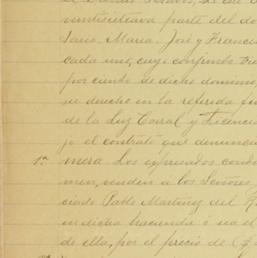 veintiseisava parte del do
Jario, María, José y Francis
cada uno, cuyo conjunto
por ciento de dicho dominio,
su derecho en la referida
de la Luz Corral y Licenc
jo el contrato que denunci
1ª mera. Los expresados cond
men, venden á los Señores
ciado Pablo Martínez del R
indicha hacienda ó sea el
de ella, por el precio de